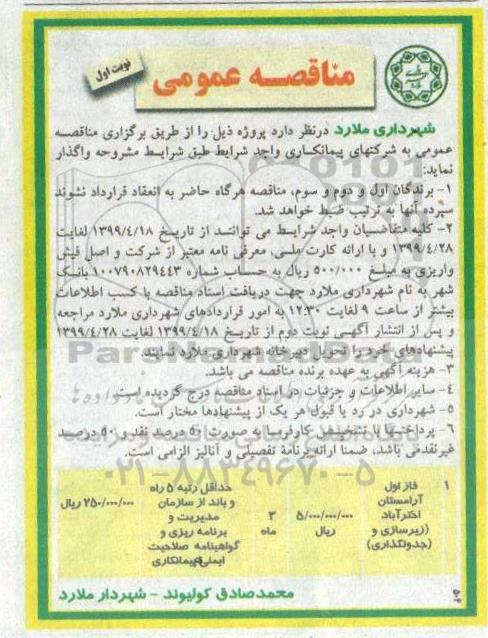 نوبت اول
مناقصه عمومی
شهرداری ملارد درنظر دارد پروژه ذیل را از طریق برگزاری مناقصه
عمومی به شرکتهای پیمانکاری واجد شرایط طبق شرایط مشروحه واگذار
نماید:
۱- برندگان اول و دوم و سوم، مناقصه هرگاه حاضر به انعقاد قرارداد نشوند
سپرده آنها به ترتیب ضبط خواهد شد.
۲- کلیه متقاضیان واجد شرایط می توانند از تاریخ ۱۳۹۹/۴/۱۸ لغایت
۱۳۹۹/۴/۲۸ و با ارائه کارت ملی، معرفی نامه معتبر از شرکت و اصل فیش
واریزی به مبلغ ۵۰۰/۰۰۰ ریال به حساب شماره ۱۰۰۷۹۰۸۲۹۴۴۳ بانک
شهر به نام شهرداری ملارد جهت دریافت اسناد مناقصه با کسب اطلاعات
بیشتر از ساعت ۹ لغایت ۱۲:۳۰ به امور قراردادهای شهرداری ملارد مراجعه
و پس از انتشار آگهی نوبت دوم از تاریخ ۱۳۹۹/۴/۱۸ لغایت ۱۳۹۹/۴/۲۸
پیشنهادهای خود را تحویل دبیرخانه شهرداری ملارد نمایند.
۳- هزینه آگهی به عهده برنده مناقصه می باشد.
۴- سایر اطلاعات و جزئیات در اسناد مناقصه درج گردیده است.
۵- شهرداری در رد یا قبول هر یک از پیشنهادها مختار است.
۶- پرداختها با تشخیص کارفرما به صورت ۵۰ درصد نقد و ۵۰ درصد
غیرنقدی می باشد، ضمنا ارائه برنامه تفصیلی و آنالیز الزامی است.
ParsNamadData
۰۲۱-۸۸۳۴۹۶۷۰-۵
۱
فاز اول
آرامستان
اخترآباد
(زیرسازی و
جدولگذاری)
۵/۰۰۰/۰۰۰/۰۰۰
ریال
۳
ماه
حداقل رتبه ۵ راه
و باند از سازمان
مدیریت و
برنامه ریزی و
گواهینامه صلاحیت
ایمنی پیمانکاری
۲۵۰/۰۰۰/۰۰۰ ریال
محمدصادق کولیوند - شهردار ملارد